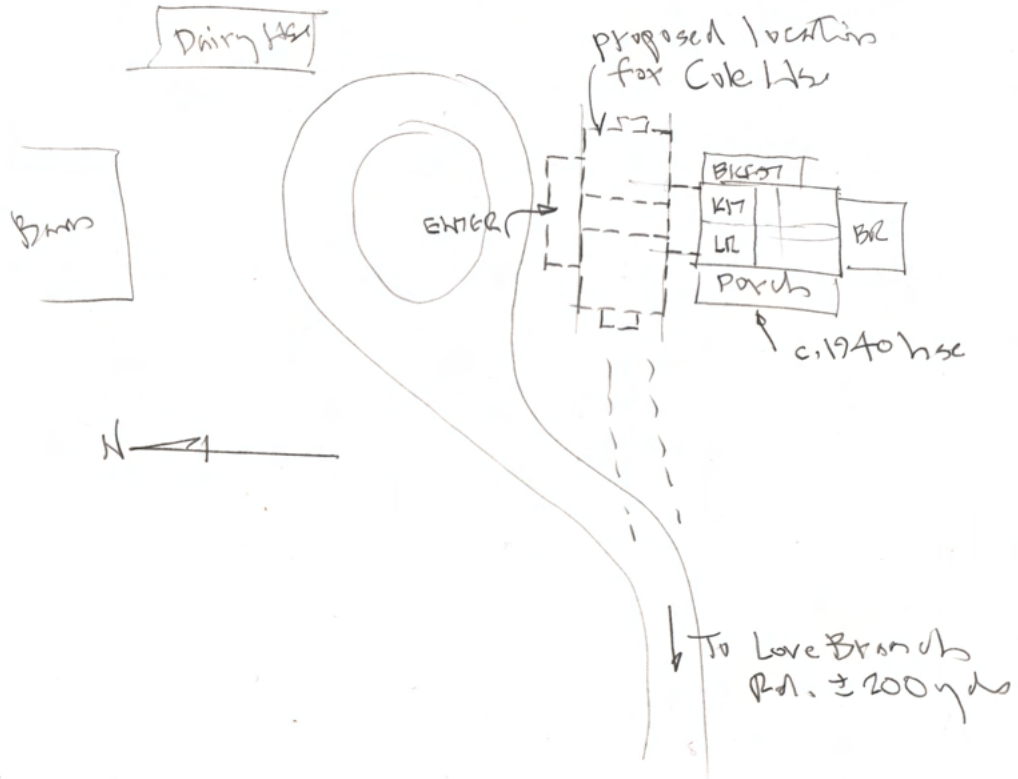 Dairy Hse
proposed location
for Cole Hse
Barn
ENTER
BKFST
KIT
LR
BR
Porch
c.1940 hse
N
To Love Branch
Rd. ± 200 yds